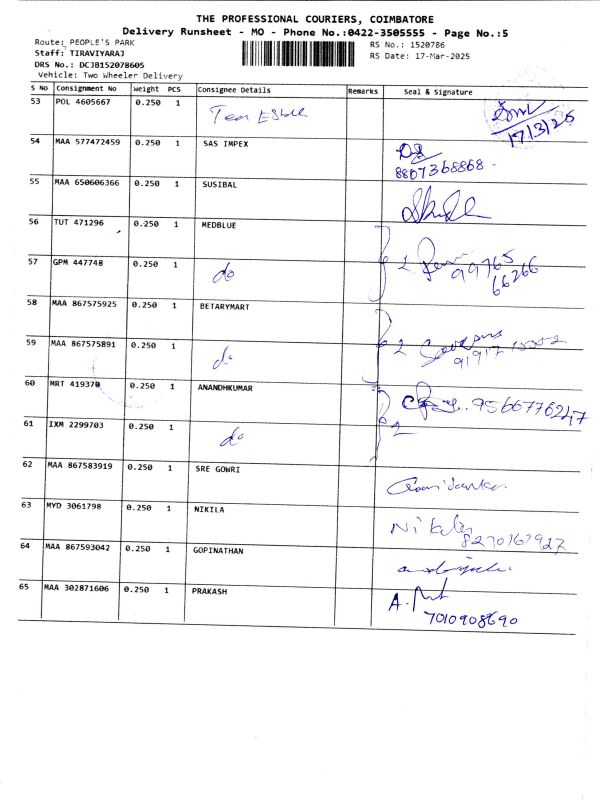 THE PROFESSIONAL COURIERS, COIMBATORE
Delivery Runsheet - MO - Phone No.:0422-3505555 - Page No.:5
Route: PEOPLE'S PARK
RS No.: 1520786
Staff: TIRAVIYARAJ
RS Date: 17-Mar-2025
DRS No.: DCJB152078605
Vehicle: Two Wheeler Delivery
S No Consignment No Weight PCS Consignee Details Remarks Seal & Signature
53 POL 4605667 0.250 1
17/3/25
54 MAA 577472459 0.250 1 SAS IMPEX
8807368868
55 MAA 650606366 0.250 1 SUSIBAL
56 TUT 471296 0.250 1 MEDBLUE
57 GPM 447748 0.250 1 do 2 99765
66266
58 MAA 867575925 0.250 1 BETARYMART
59 MAA 867575891 0.250 1 do 2
60 MRT 419370 0.250 1 ANANDHKUMAR 9566776247
61 IXM 2299703 0.250 1 do 2
62 MAA 867583919 0.250 1 SRE GOWRI
63 MYD 3061798 0.250 1 NIKILA
64 MAA 867593042 0.250 1 GOPINATHAN
65 MAA 302871606 0.250 1 PRAKASH
7010908690